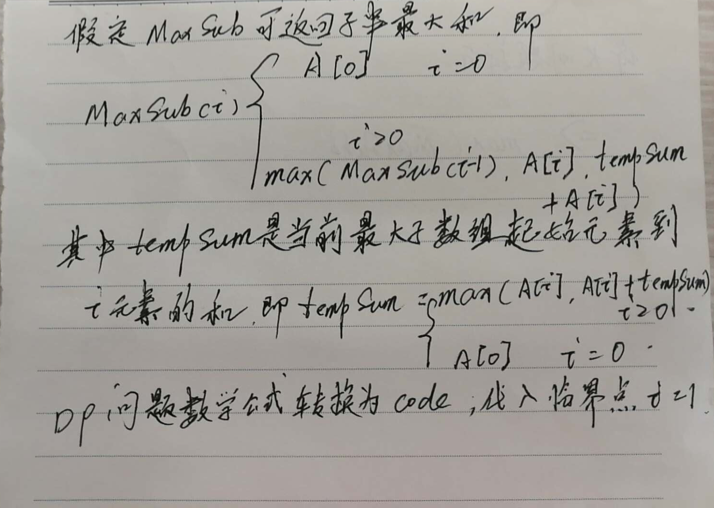 假定 MaxSub 可返回子串最大和，即
A[0] i=0
MaxSub(i) {
i>0
max( MaxSub(i-1), A[i], tempSum
+A[i])
其中 tempSum是当前最大子数组起始元素到
i元素的和，即 tempSum = { max(A[i], A[i]+tempSum)
i>0
A[0] i=0.
DP问题数学公式转换为code，代入临界点 i=1